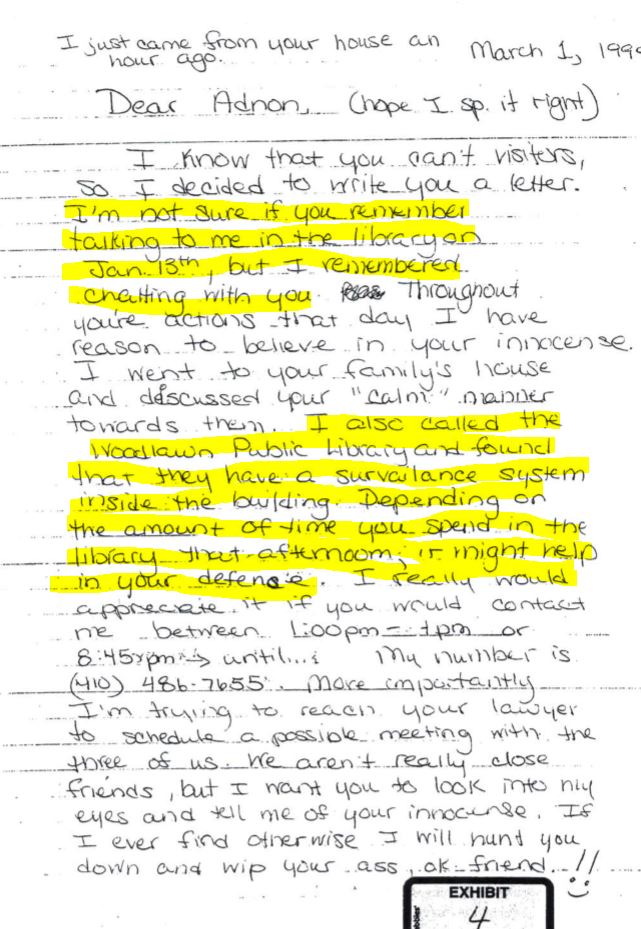 I just came from your house an
hour ago.
March 1, 1999
Dear Adnon, (hope I sp. it right)
I know that you can't visitors,
so I decided to write you a letter.
I'm not sure if you remember
talking to me in the library on
Jan. 13th, but I remembered
chatting with you. Throughout
you're actions that day I have
reason to believe in your innocense.
I went to your family's house
and discussed your "calm" manner
towards them. I also called the
Woodlawn Public Library and found
that they have a survailance system
inside the building. Depending on
the amount of time you spend in the
library that afternoon, it might help
in your defence. I really would
appreciate it if you would contact
me between 1:00pm - 4pm or
8:45pm → until...: My number is
(410) 486-7655. More importantly
I'm trying to reach your lawyer
to schedule a possible meeting with the
three of us. We aren't really close
friends, but I want you to look into my
eyes and tell me of your innocense. If
I ever find otherwise I will hunt you
down and wip your ass, ok friend..!!
EXHIBIT
4